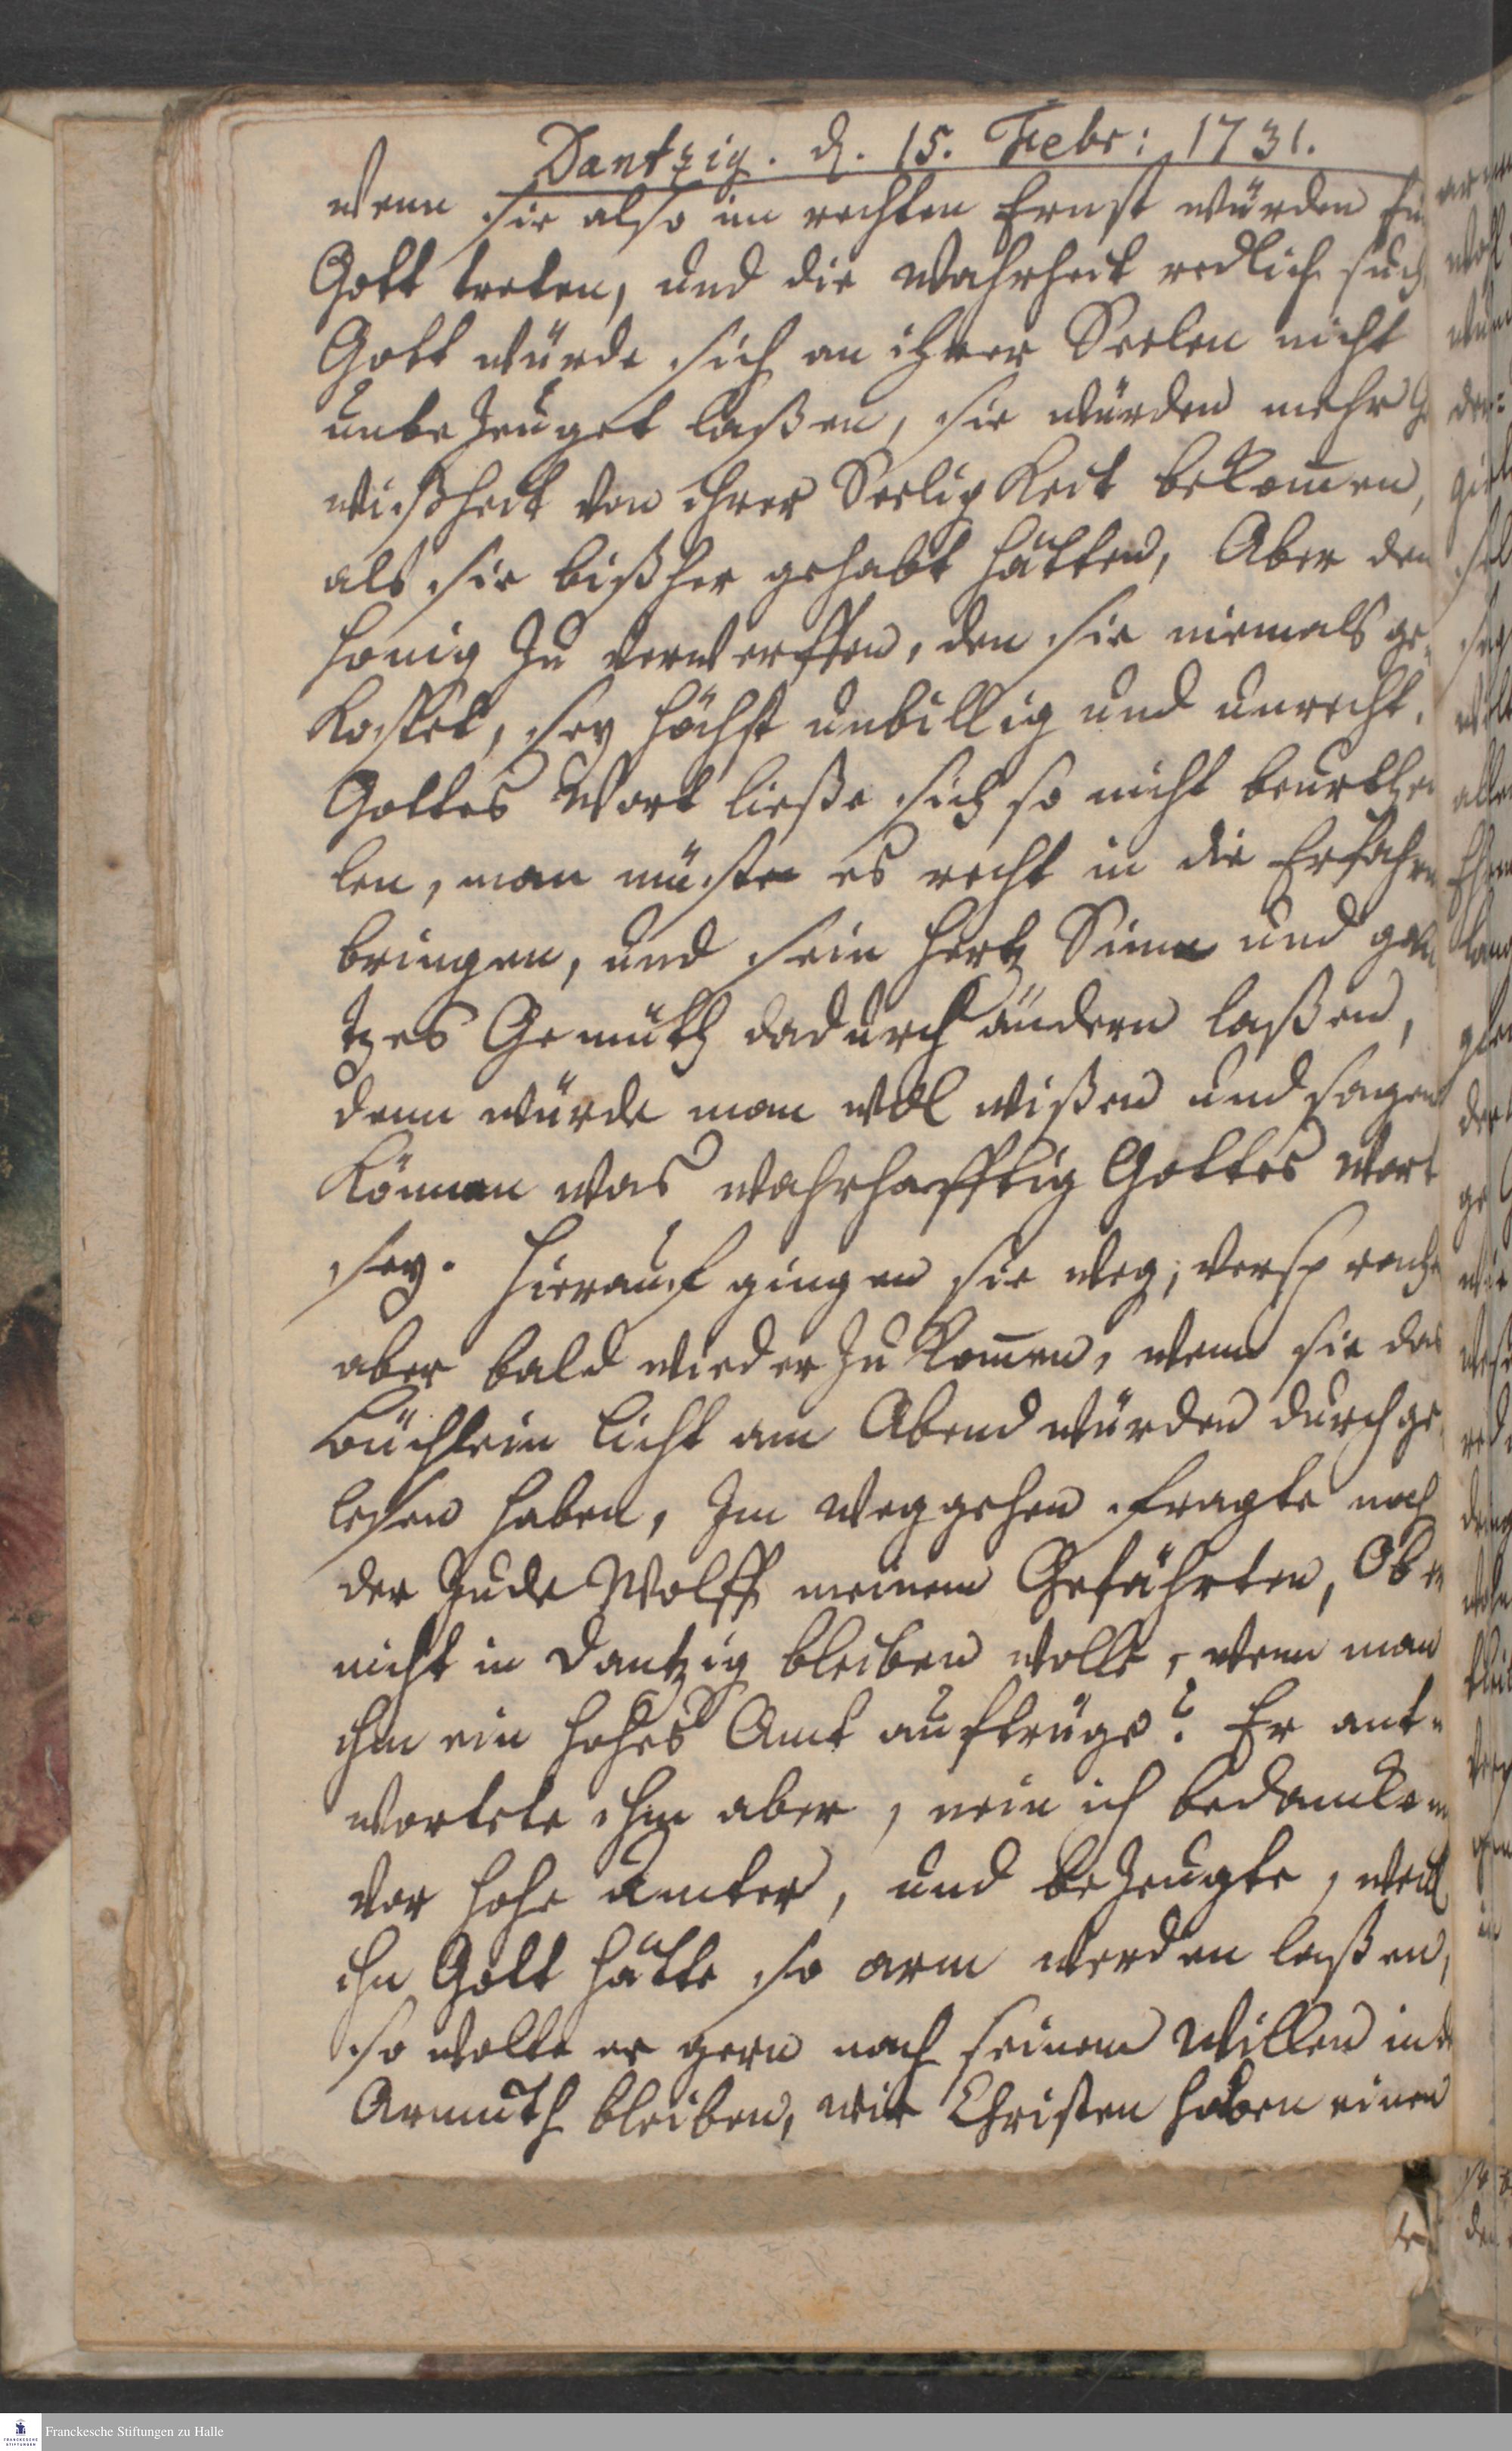 Dantzig. d. 15. Febr: 1731.
wenn sie also im rechten Ernst würden für
Gott treten, und die Wahrheit redlich such
Gott würde sich an ihrer Seelen nicht
unbezeuget laßen, sie würden mehr Ge
wißheit von ihrer Seeligkeit bekom̅en,
als sie bißher gehabt hätten, Aber den
Honig zu verwerffen, den sie niemals ge-
kostet, sey höchst unbillig und unrecht.
Gottes Wort ließe sich so nicht beurthei
len, man müste es recht in die Erfahru
bringen, und sein Hertz Sinn und gan
tzes Gemüth dadurch ändern laßen,
denn würde man wol wißen und sagen
können was wahrhafftig Gottes Wort
sey. Hierauf gingen sie weg, versprache
aber bald wieder zu kom̅en, wenn sie das
Büchlein Licht am Abend würden durchge
lesen haben, Im Weggehen fragte noch
der Jude Wolff meinem Gefährten, Ob er
nicht in Dantzig bleiben wolle, wenn man
ihm ein hohes Amt auftrüge? Er ant-
wortete ihm aber, nein ich bedancke m
vor hohe Ämter, und bezeugte, weil
ihn Gott hätte so arm werden laßen,
so wolte er gern nach seinem Willen in d
Armuth bleiben, wir Christen haben einen
Franckesche Stiftungen zu Halle